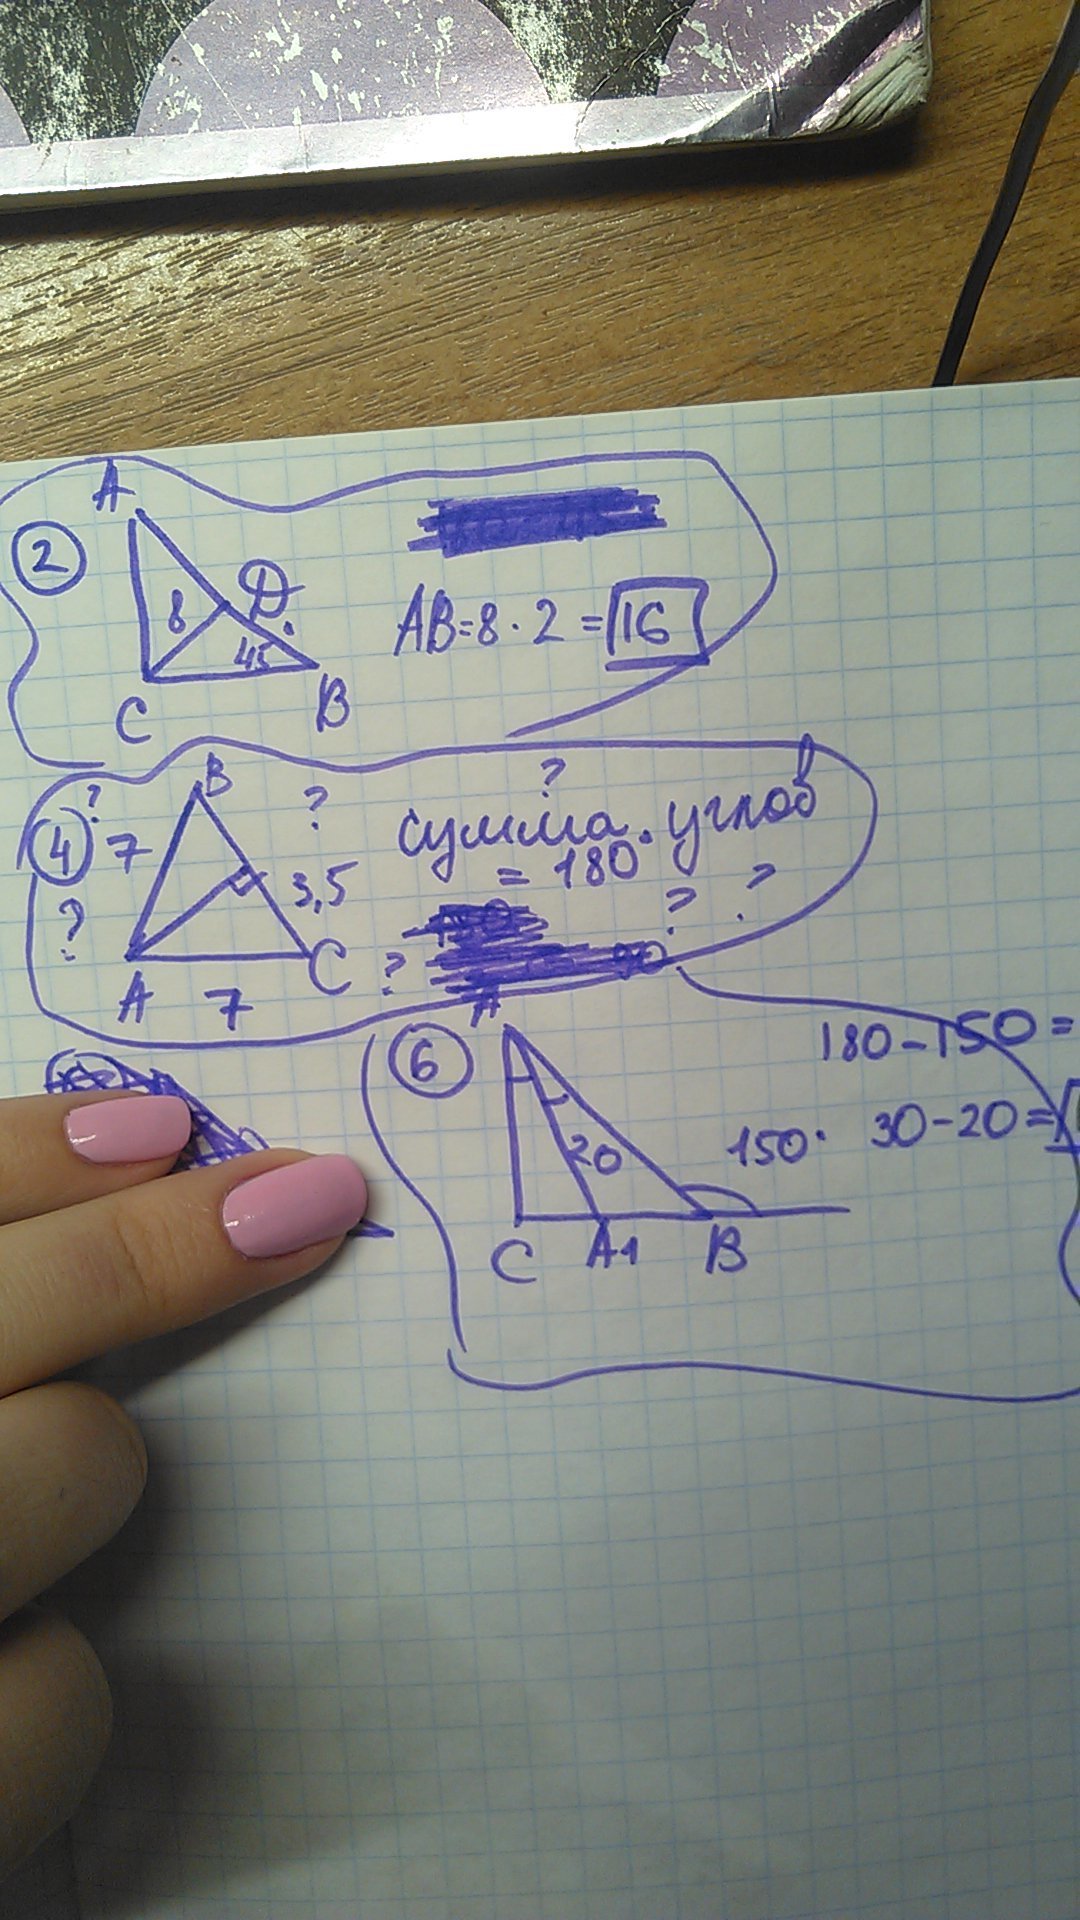 A
2
8
D
45
C
B
AB=8·2=16
B
?
?
?
4
7
сумма углов
= 180°
3,5
?
?
?
?
A
7
C
A
6
180-150=
20
150°
30-20=
C
A1
B